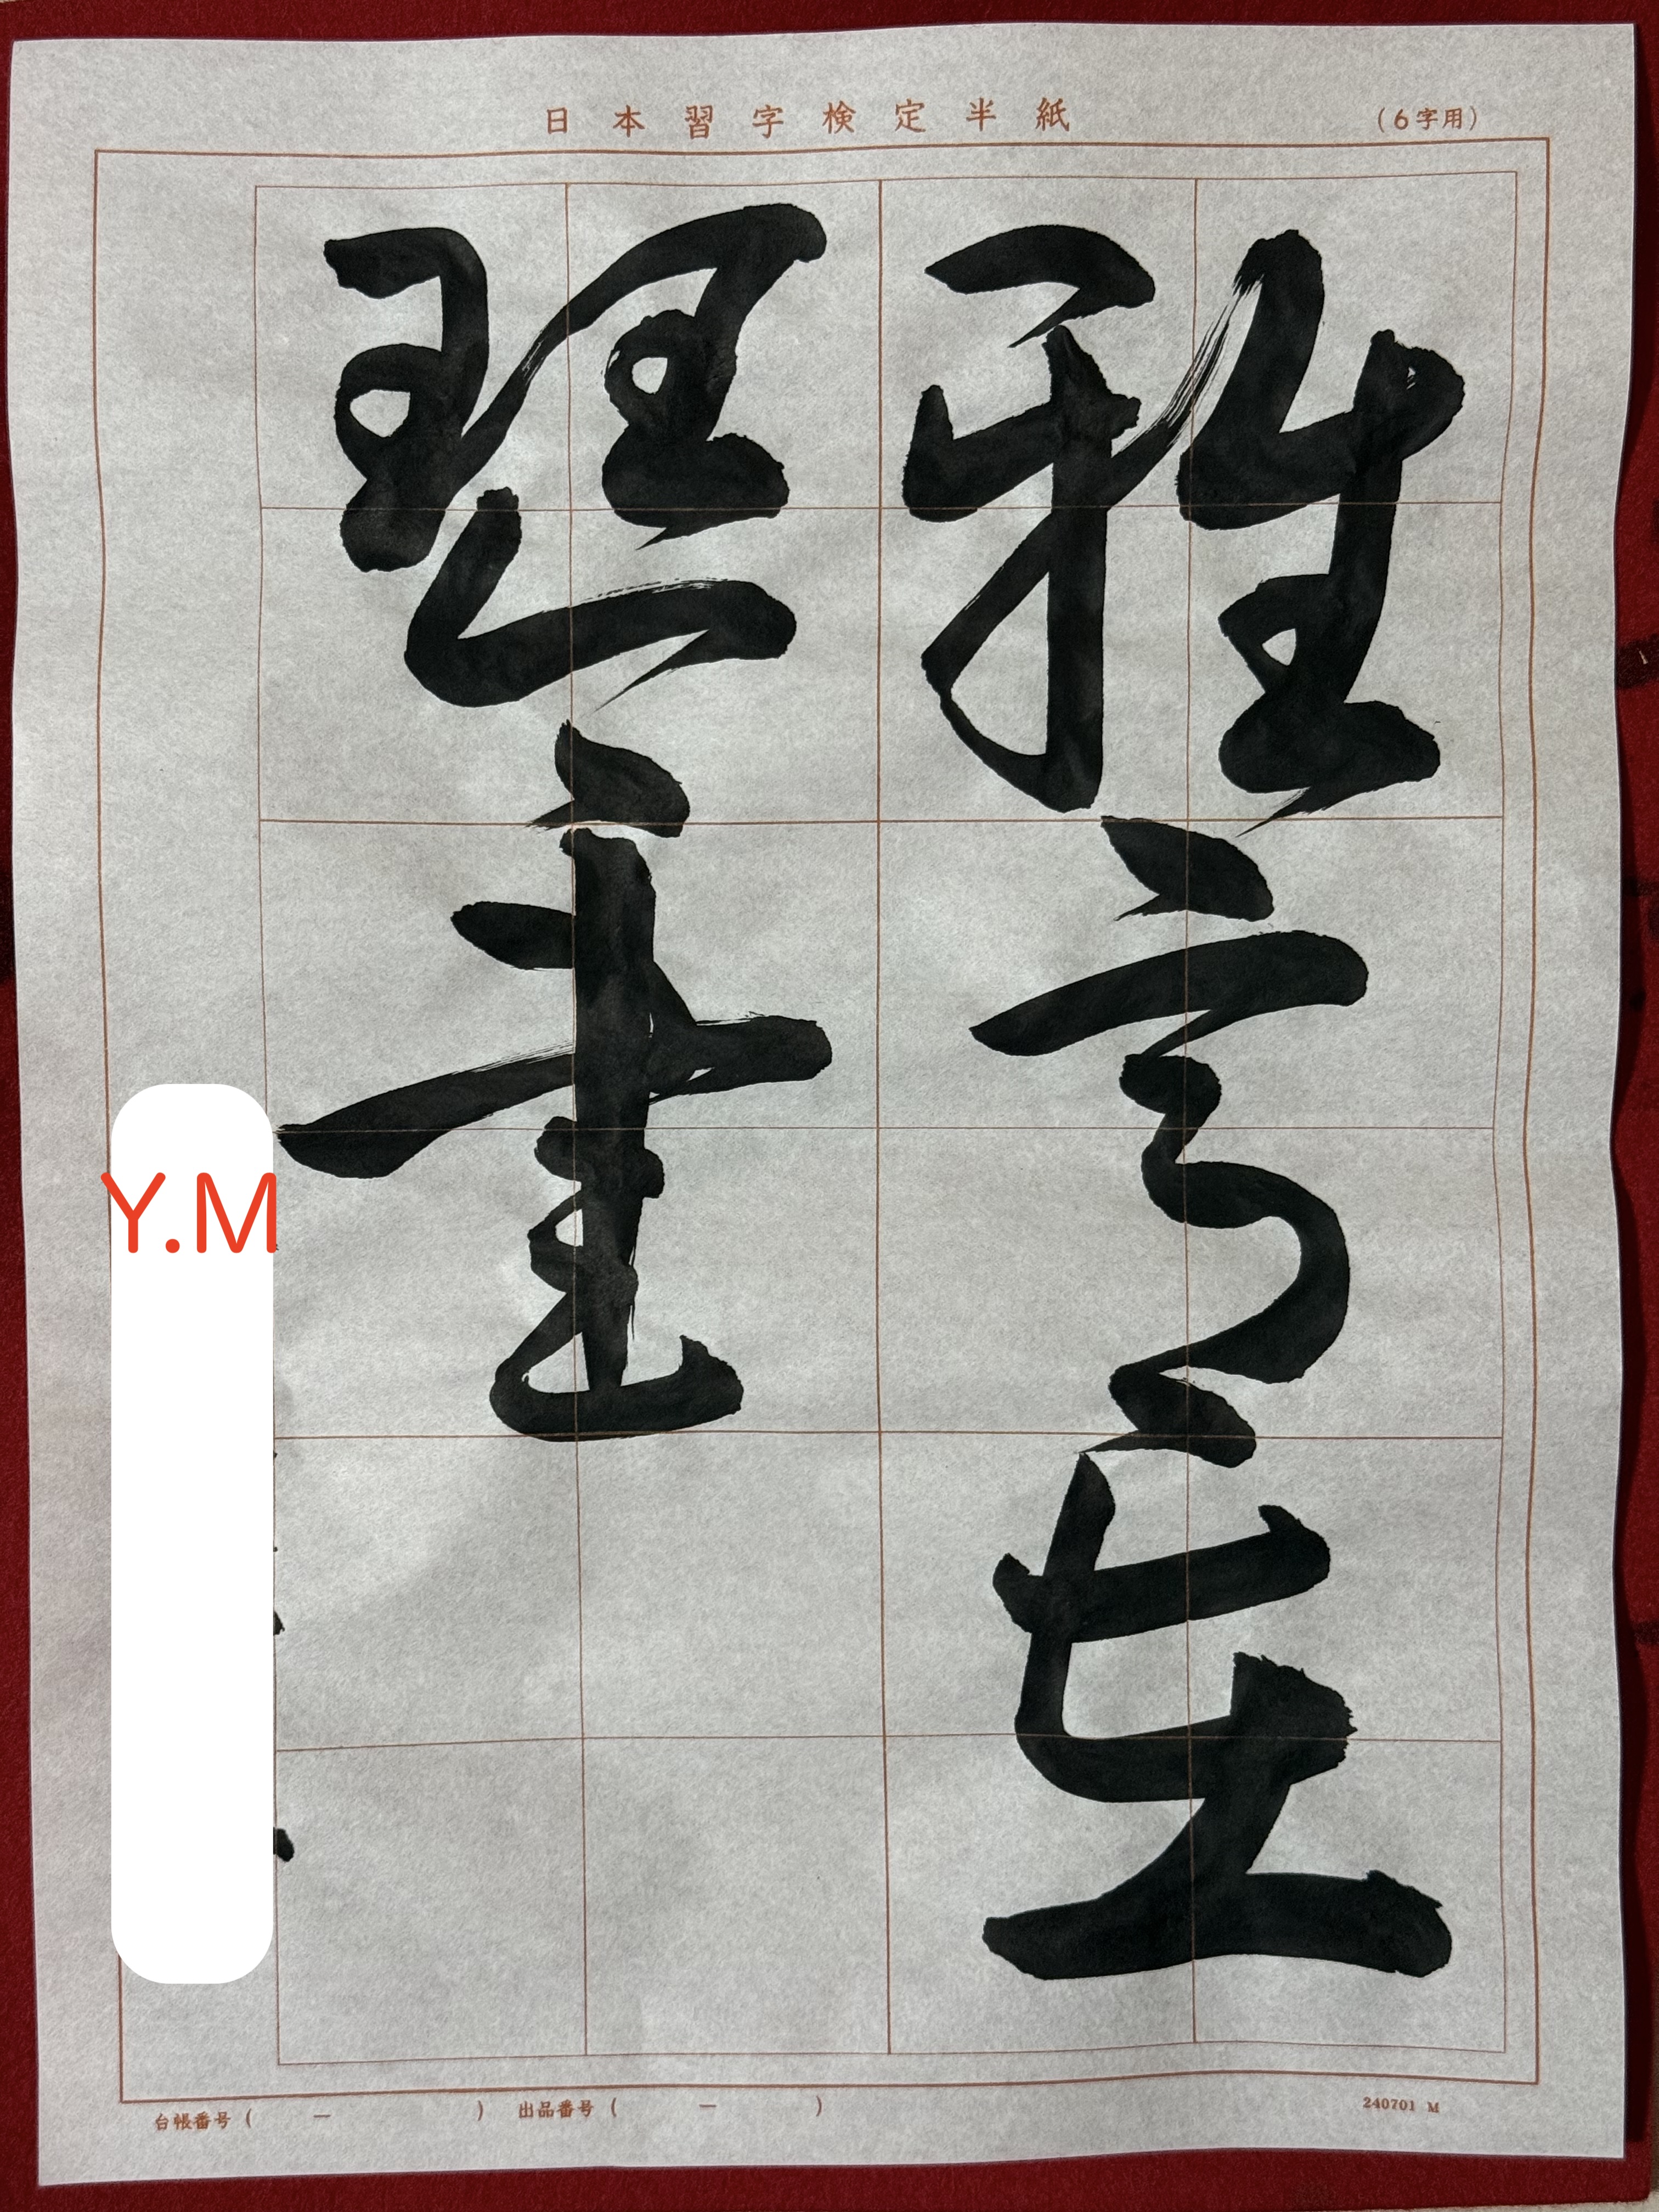 日本習字検定半紙
(6字用)
雅意在
琴書
Y.M
台帳番号 ( － ) 出品番号 ( － )
240701 M